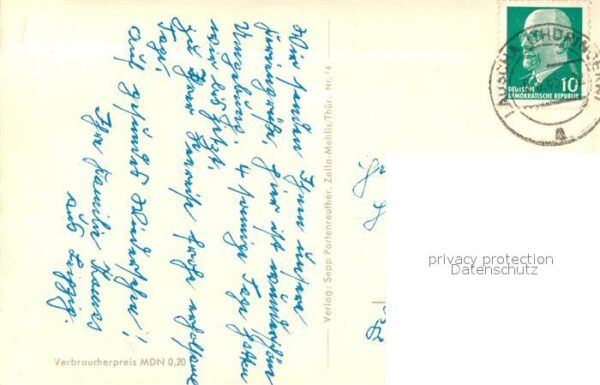 Wir senden Ihnen unsere
Feriengrüße, hier ist wunderschöne
Umgebung, 4 sonnige Tage hatten
wir bis jetzt.
zu Ihrer Ferien frohe erholsame
Tage
auf gesundes Wiedersehen!
Ihre Familie
aus Leipzig.
Verlag: Sepp Portenreuther, Zella-Mehlis/Thür. Nr. 14
Verbraucherpreis MDN 0,20
10
DEUTSCHE
DEMOKRATISCHE REPUBLIK
LAUSCHA (THÜRINGER W)
a
privacy protection
Datenschutz